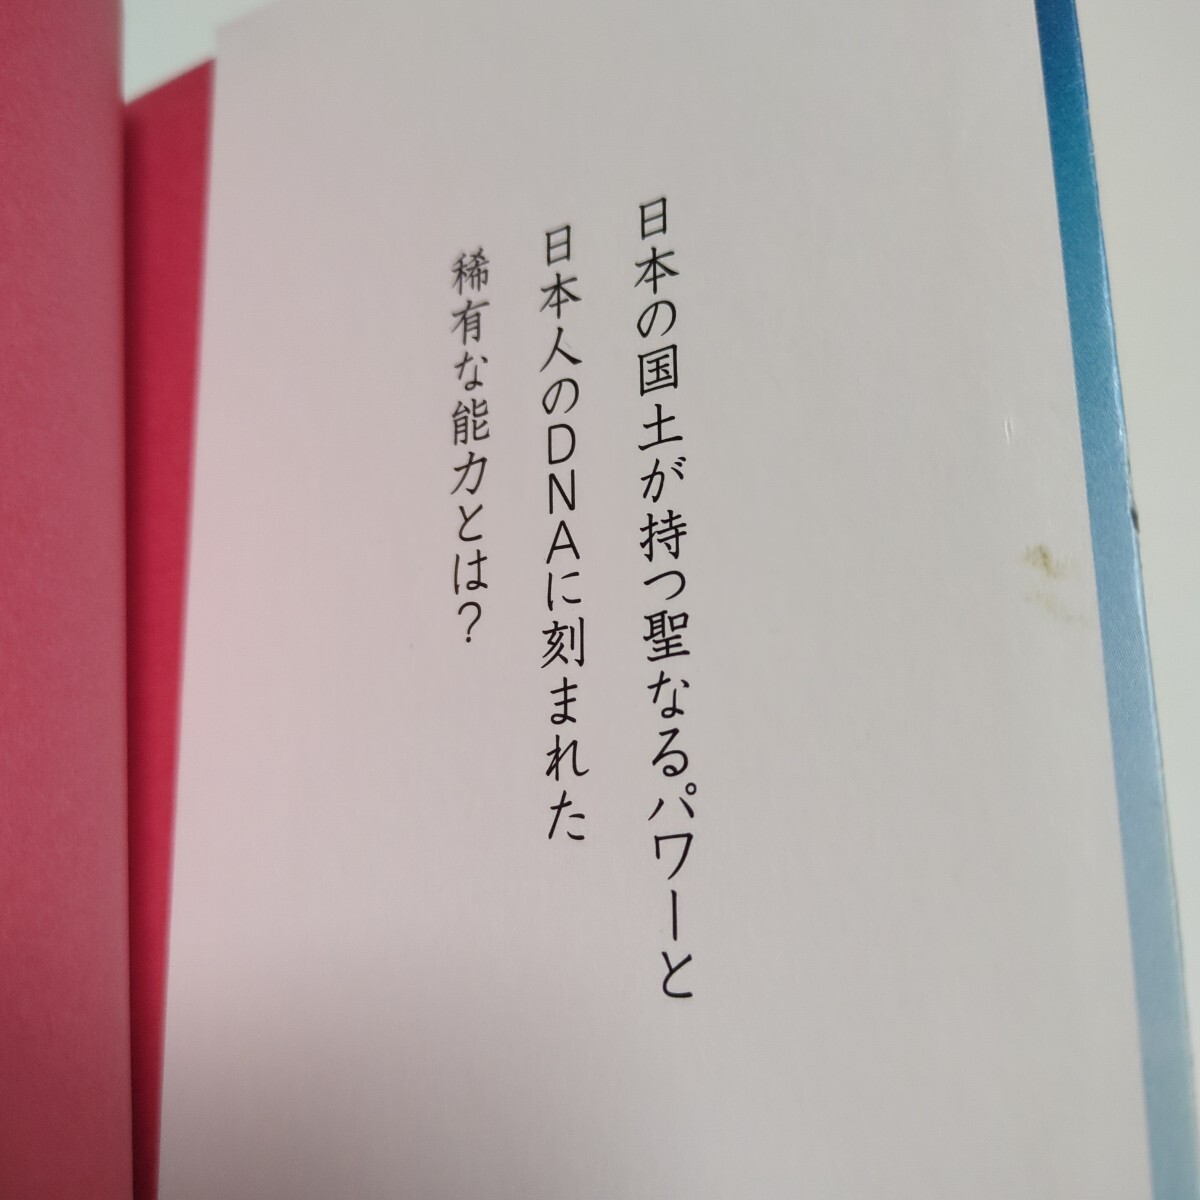 日本の国土が持つ聖なるパワーと
日本人のDNAに刻まれた
稀有な能力とは?